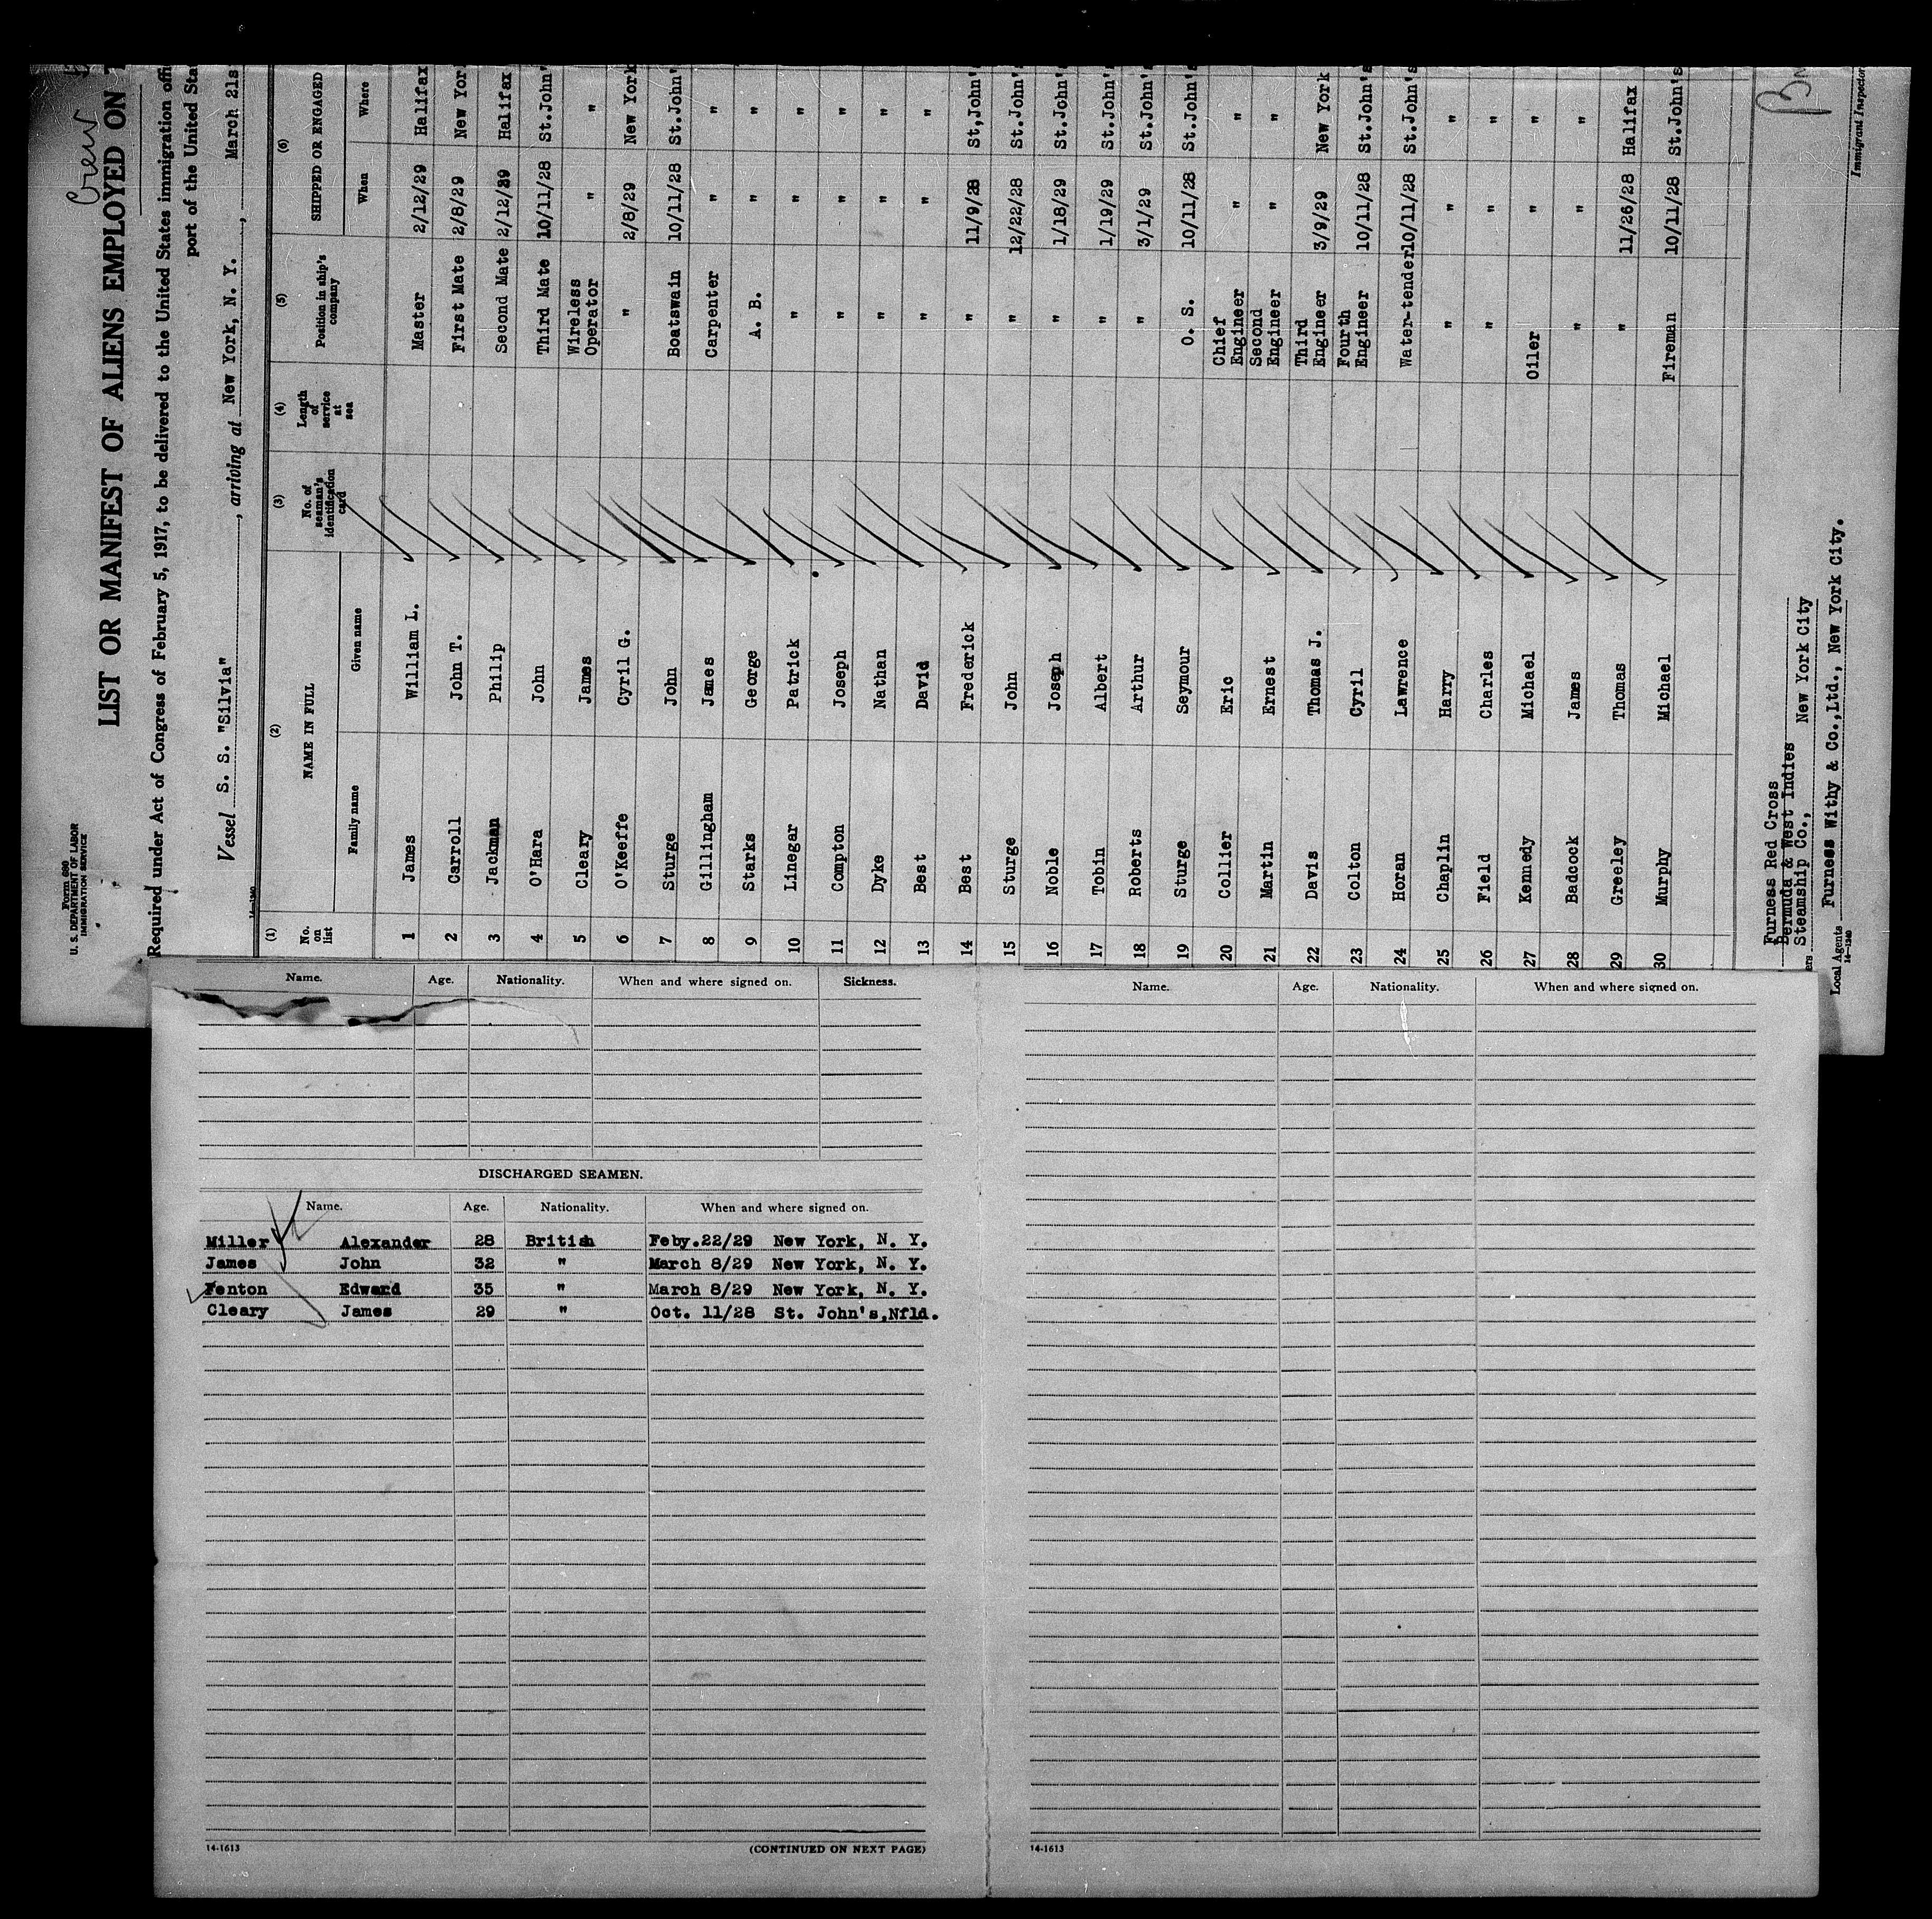 Crew
Form 680
U. S. DEPARTMENT OF LABOR
IMMIGRATION SERVICE
LIST OR MANIFEST OF ALIENS EMPLOYED ON
Required under Act of Congress of February 5, 1917, to be delivered to the United States immigration
port of the United
Vessel S. S. "Silvia", arriving at New York, N. Y., March 21s
14-1240
(1) (2) (3) (4) (5) (6)
No. on list NAME IN FULL No. of seaman's identification card Length of service at sea Position in ship's company SHIPPED OR ENGAGED
Family name Given name When Where
1 James William L. Master 2/12/29 Halifax
2 Carroll John T. First Mate 2/8/29 New Yor
3 Jackman Philip Second Mate 2/12/29 Halifax
4 O'Hara John Third Mate 10/11/28 St.John'
5 Cleary James Wireless Operator " "
6 O'Keeffe Cyril G. " 2/8/29 New York
7 Sturge John Boatswain 10/11/28 St.John'
8 Gillingham James Carpenter " "
9 Starks George A. B. " "
10 Linegar Patrick " " "
11 Compton Joseph " " "
12 Dyke Nathan " " "
13 Best David " " "
14 Best Frederick " 11/9/28 St,John'
15 Sturge John " 12/22/28 St.John'
16 Noble Joseph " 1/18/29 St.John'
17 Tobin Albert " 1/19/29 St.John'
18 Roberts Arthur " 3/1/29 St.John's
19 Sturge Seymour O. S. 10/11/28 St.John's
20 Collier Eric Chief Engineer " "
21 Martin Ernest Second Engineer " "
22 Davis Thomas J. Third Engineer 3/9/29 New York
23 Colton Cyril Fourth Engineer 10/11/28 St.John's
24 Horan Lawrence Water-tender 10/11/28 St.John's
25 Chaplin Harry " " "
26 Field Charles " " "
27 Kennedy Michael Oiler " "
28 Badcock James " " "
29 Greeley Thomas " 11/26/28 Halifax
30 Murphy Michael Fireman 10/11/28 St.John's
Furness Red Cross
Bermuda & West Indies
Steamship Co., New York City
ers
Local Agents Furness Withy & Co.,Ltd., New York City.
14-1240
Immigrant Inspector
Name. Age. Nationality. When and where signed on. Sickness.
DISCHARGED SEAMEN.
Name. Age. Nationality. When and where signed on.
Miller Alexander 28 British Feby.22/29 New York, N. Y.
James John 32 " March 8/29 New York, N. Y.
Fenton Edward 35 " March 8/29 New York, N. Y.
Cleary James 29 " Oct. 11/28 St. John's,Nfld.
14-1613 (CONTINUED ON NEXT PAGE)
Name. Age. Nationality. When and where signed on.
14-1613